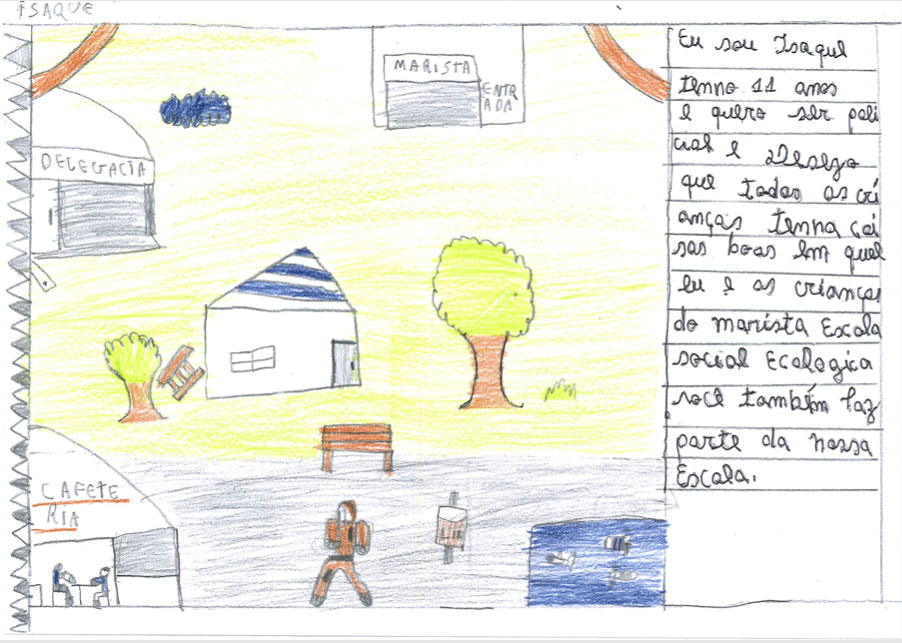 ISAQUE
MARISTA
ENTR
ADA
DELEGACIA
CAFETE
RIA
Eu sou Isaque
tenho 11 anos
e quero ser poli
cial e Desejo
que todas as cri
anças tenha coi
sas boas em quel
eu e as crianças
do marista Escola
social Ecologica
você também faz
parte da nossa
Escola.